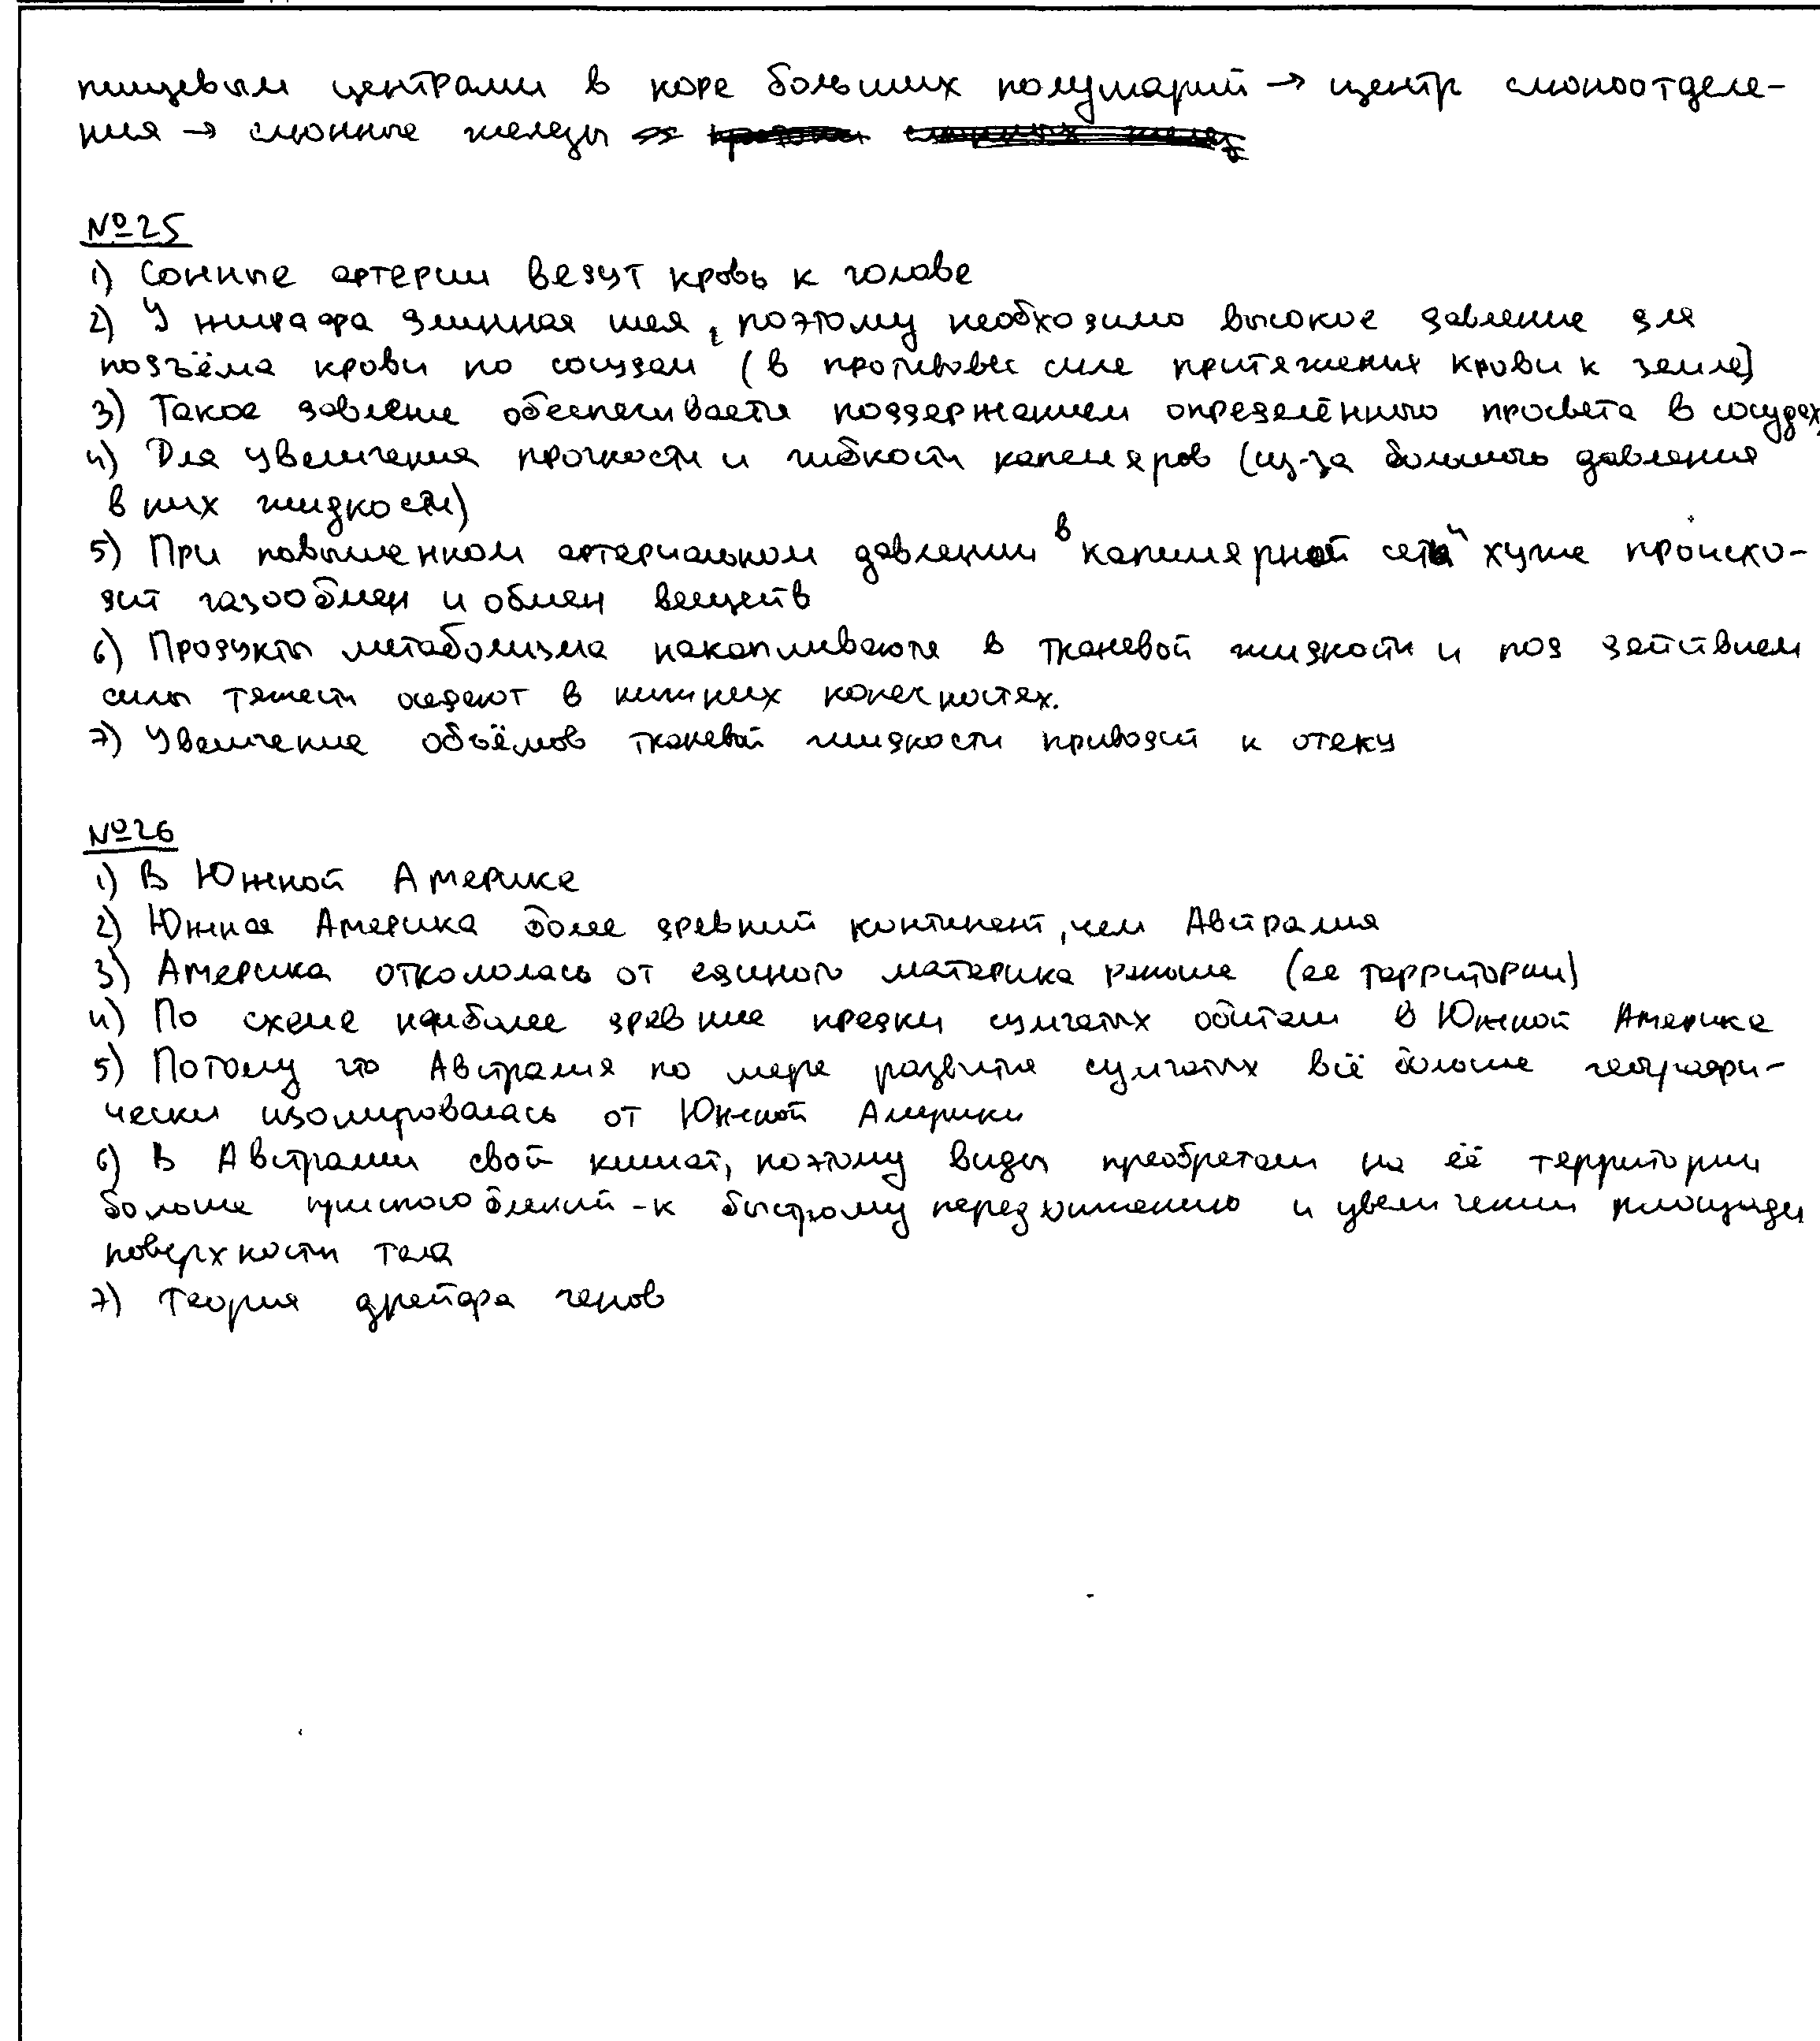 пищевым центрами в коре больших полушарий → центр слюноотделе-
ния → слюнные железы
№25
1) Сонные артерии везут кровь к голове
2) У жирафа длинная шея, поэтому необходимо высокое давление для
подъёма крови по сосудам (в противовес силе притяжения крови к земле)
3) Такое давление обеспечивается поддержанием определённого просвета в сосудах
4) Для увеличения прочности и гибкости капеляров (из-за большого давления
в них жидкости)
5) При повышенном артериальном давлении в капилярной сети хуже происхо-
дит газообмен и обмен веществ
6) Продукты метаболизма накапливаются в тканевой жидкости и под действием
силы тяжести оседают в нижних конечностях.
7) Увеличение объёмов тканевой жидкости приводит к отеку
№26
1) В Южной Америке
2) Южная Америка более древний континент, чем Австралия
3) Америка откололась от единого материка раньше (ее территории)
4) По схеме наиболее древние предки сумчатых обитали в Южной Америке
5) Потому что Австралия по мере развития сумчатых всё больше географи-
чески изолировалась от Южной Америки
6) В Австралии свой климат, поэтому виды преобретали на её территории
больше приспособлений - к быстрому передвижению и увеличении площади
поверхности тела
7) Теория дрейфа генов